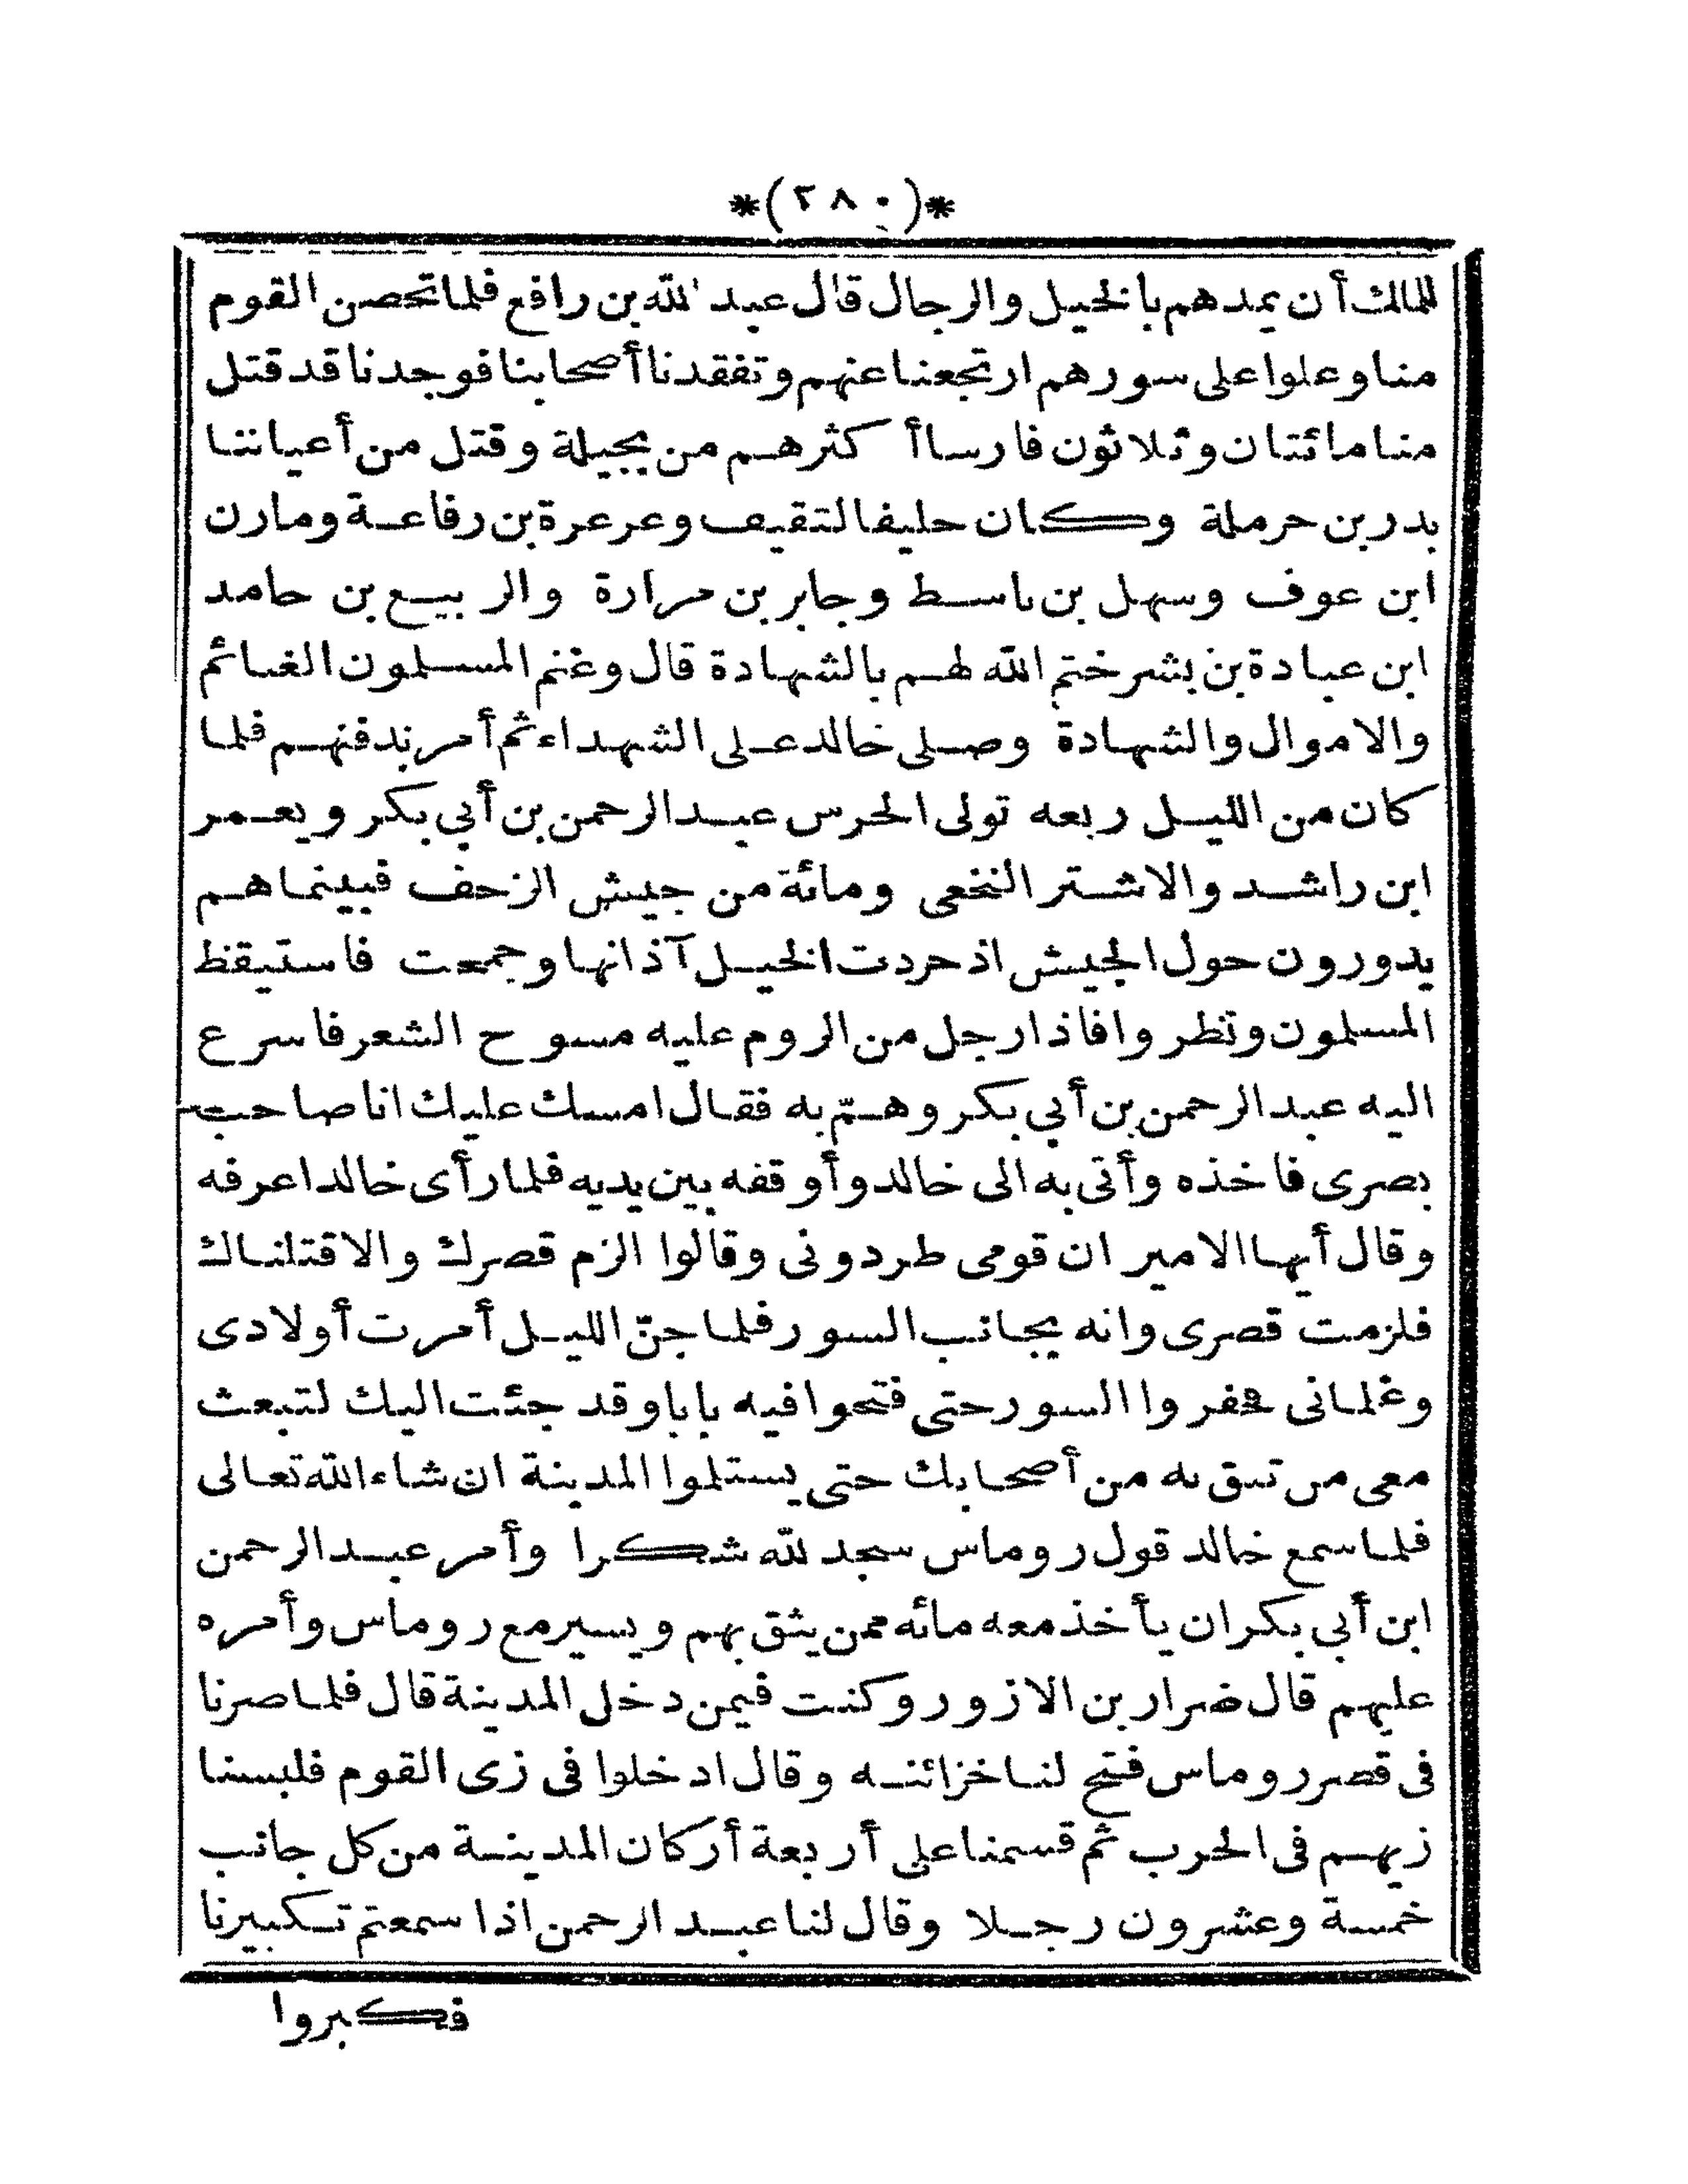 *(٢٨٠)*
للمالك أن يمدهم بالخيل والرجال قال عبد الله بن رافع فلما تحصن القوم
منا وعلوا على سورهم ارتجعنا عنهم وتفقدنا أصحابنا فوجدنا قد قتل
منا مائتان وثلاثون فارسا أكثرهم من بجيلة وقتل من أعياننا
بدر بن حرملة وكان حليفا لثقيف وعرعرة بن رفاعة ومارن
ابن عوف وسهل بن باسط وجابر بن مرارة والربيع بن حامد
ابن عبادة بن بشر ختم الله لهم بالشهادة قال وغنم المسلمون الغنائم
والاموال والشهادة وصلى خالد على الشهداء ثم أمر بدفنهم فلما
كان من الليل ربعه تولى الحرس عبد الرحمن بن أبي بكر ويعمر
ابن راشد والاشتر النخعى ومائة من جيش الزحف فبينما هم
يدورون حول الجيش اذ حردت الخيل آذانها وجمعت فاستيقظ
المسلمون ونظروا فاذا رجل من الروم عليه مسوح الشعر فاسرع
اليه عبد الرحمن بن أبي بكر وهمّ به فقال امسك عليك انا صاحب
بصرى فاخذه وأتى به الى خالد وأوقفه بين يديه فلما رأى خالدا عرفه
وقال أيها الامير ان قومى طردونى وقالوا الزم قصرك والا قتلناك
فلزمت قصرى وانه بجانب السور فلما جنّ الليل أمرت أولادى
وغلمانى فحفروا السور حتى فتحوا فيه بابا وقد جئت اليك لتبعث
معى من تثق به من أصحابك حتى يستلموا المدينة ان شاء الله تعالى
فلما سمع خالد قول روماس سجد لله شكرا وأمر عبد الرحمن
ابن أبي بكر ان يأخذ معه مائه ممن يثق بهم ويسير مع روماس وأمره
عليهم قال ضرار بن الازور وكنت فيمن دخل المدينة قال فلما صرنا
فى قصر روماس فتح لنا خزائنه وقال ادخلوا فى زى القوم فلبسنا
زيهم فى الحرب ثم قسمنا على أربعة أركان المدينة من كل جانب
خمسة وعشرون رجلا وقال لنا عبد الرحمن اذا سمعتم تكبيرنا
فكبروا